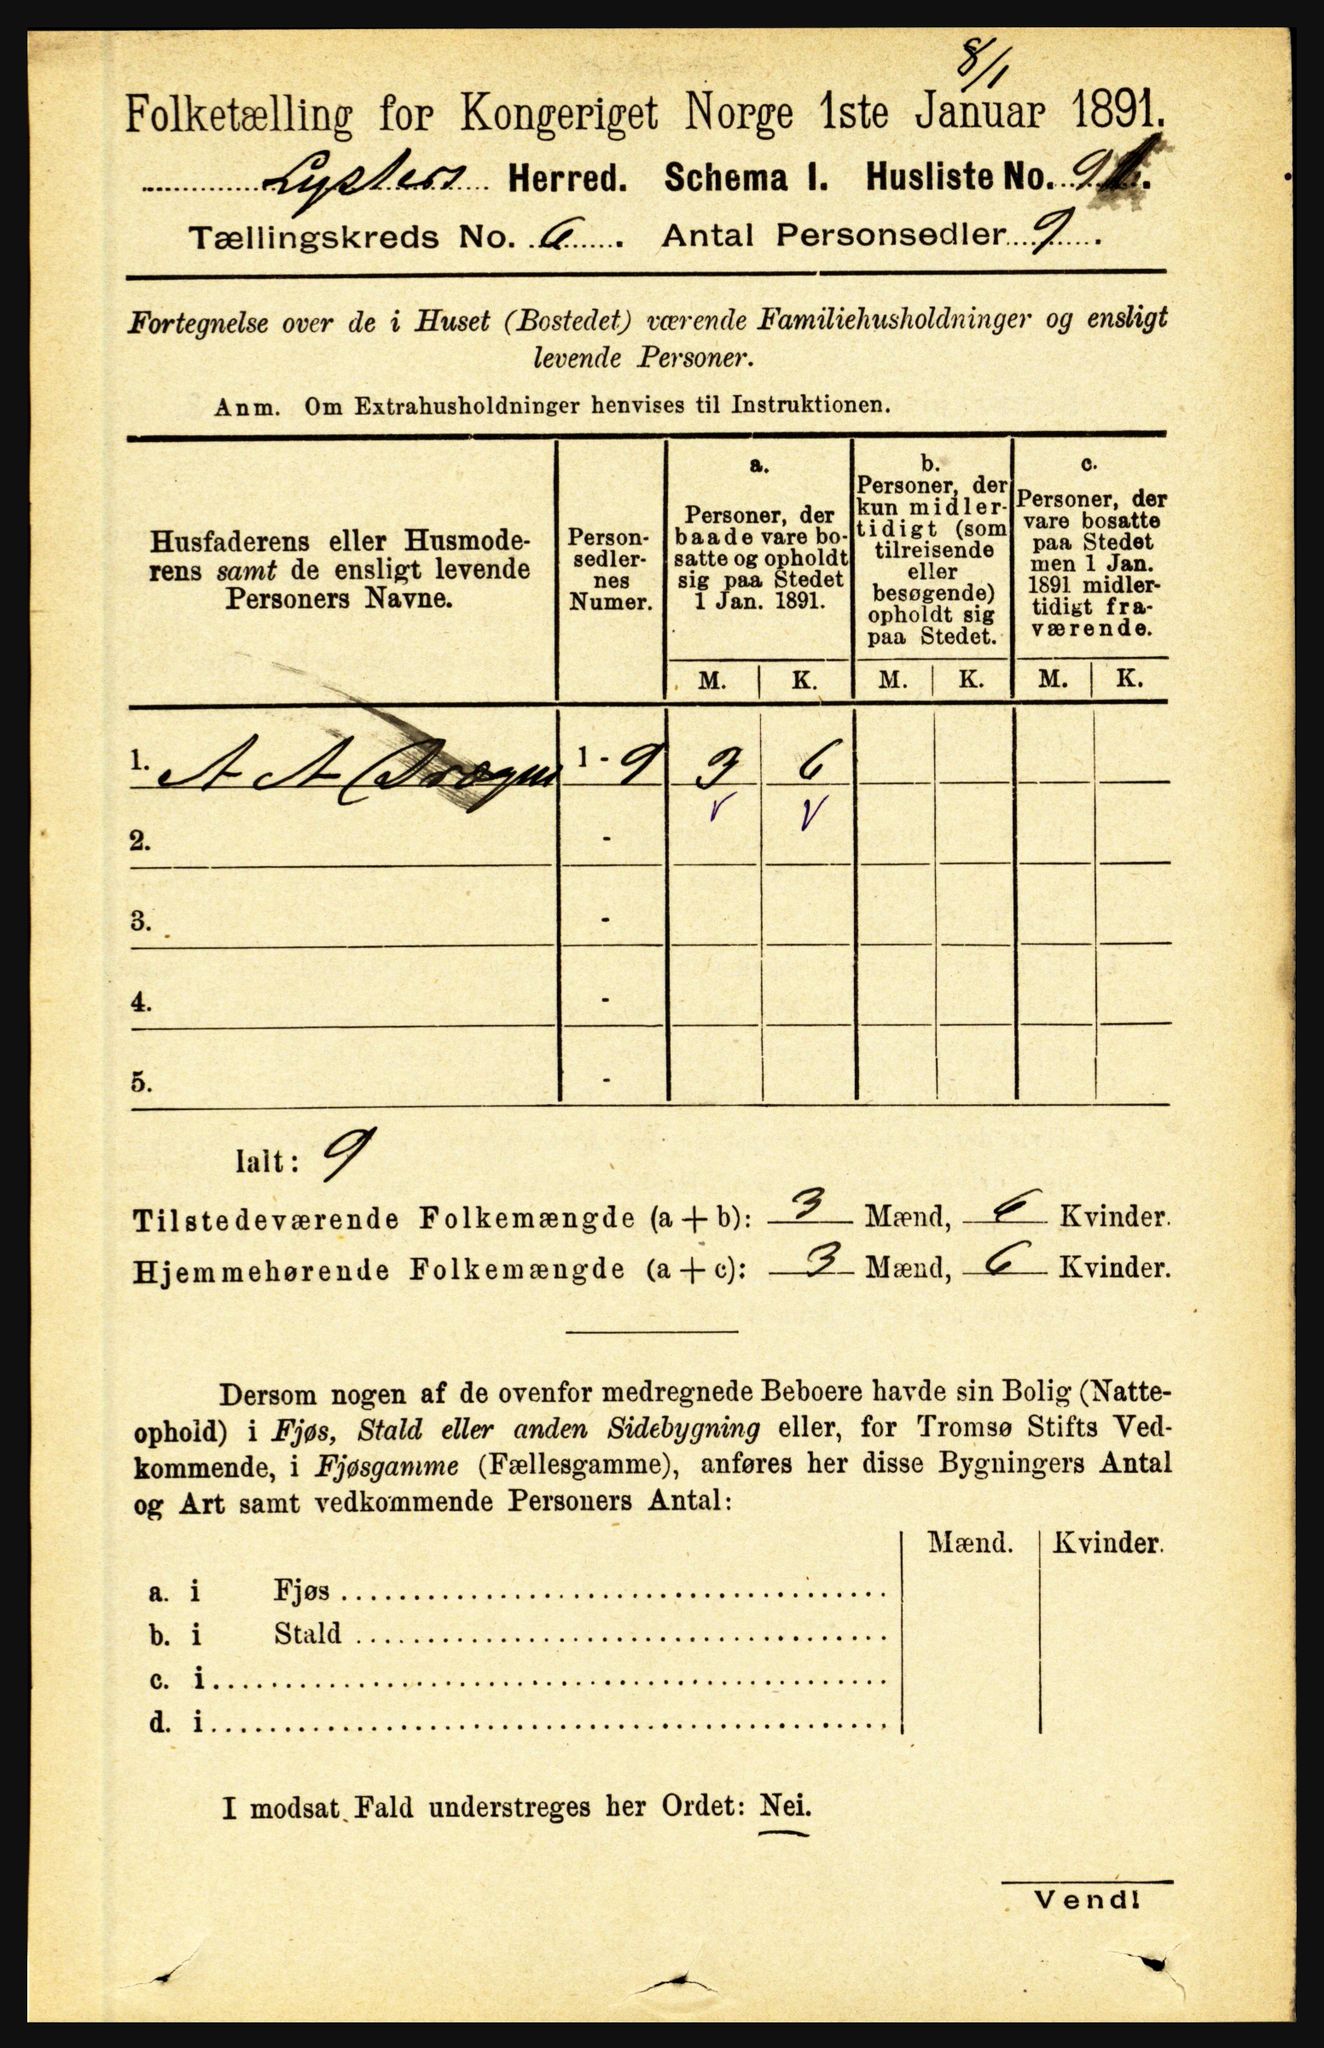 8/1
Folketælling for Kongeriget Norge 1ste Januar 1891.
Lysters Herred. Schema I. Husliste No.
Tællingskreds No. 6. Antal Personsedler 9.
Fortegnelse over de i Huset (Bostedet) værende Familiehusholdninger og ensligt
levende Personer.
Anm. Om Extrahusholdninger henvises til Instruktionen.
Husfaderens eller Husmode-
rens samt de ensligt levende
Personers Navne.
Person-
sedler-
nes
Numer.
a.
Personer, der
baade vare bo-
satte og opholdt
sig paa Stedet
1 Jan. 1891.
b.
Personer, der
kun midler-
tidigt (som
tilreisende
eller
besøgende)
opholdt sig
paa Stedet.
c.
Personer, der
vare bosatte
paa Stedet
men 1 Jan.
1891 midler-
tidigt fra-
værende.
M. K. M. K. M. K.
1. A A 1 - 9 3 6
2. - v v
3. -
4. -
5. -
Ialt: 9
Tilstedeværende Folkemængde (a + b): 3 Mænd, 6 Kvinder.
Hjemmehørende Folkemængde (a + c): 3 Mænd, 6 Kvinder.
Dersom nogen af de ovenfor medregnede Beboere havde sin Bolig (Natte-
ophold) i Fjøs, Stald eller anden Sidebygning eller, for Tromsø Stifts Ved-
kommende, i Fjøsgamme (Fællesgamme), anføres her disse Bygningers Antal
og Art samt vedkommende Personers Antal:
Mænd. Kvinder.
a. i Fjøs
b. i Stald
c. i
d. i
I modsat Fald understreges her Ordet: Nei.
Vend!